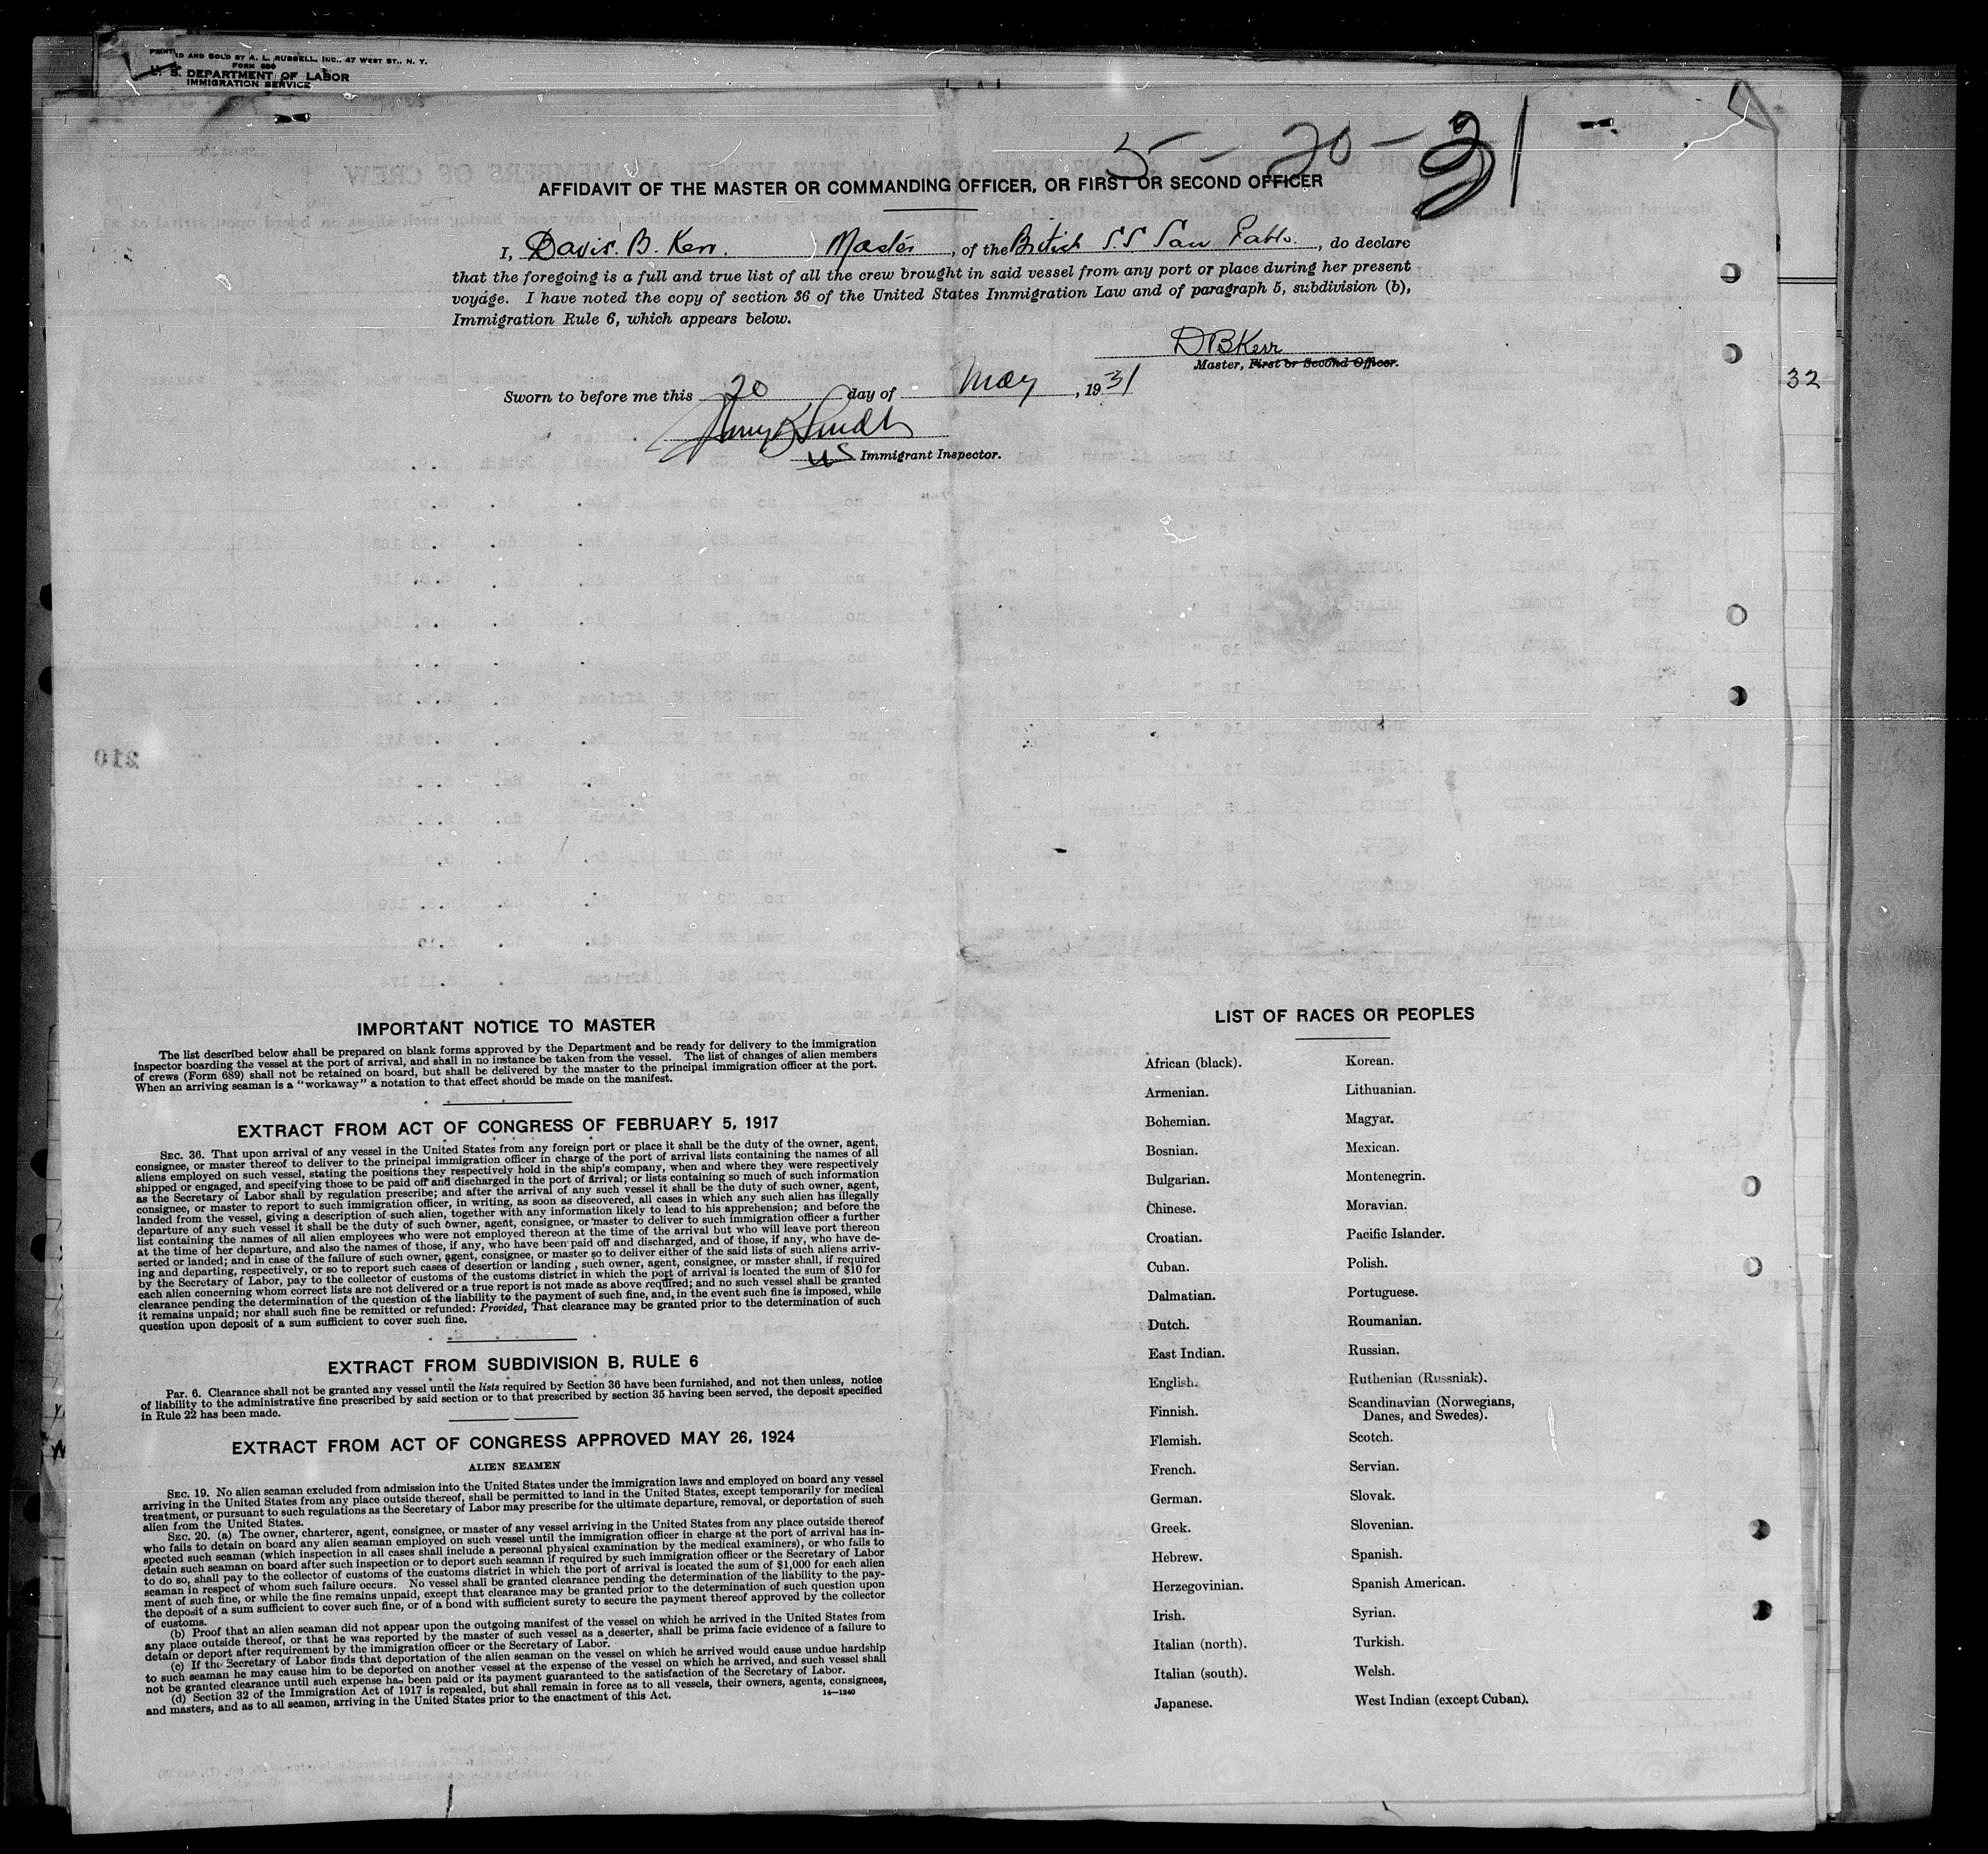 PRINTED AND SOLD BY A. L. RUSSELL, INC., 47 WEST ST., N. Y.
FORM 689
U. S. DEPARTMENT OF LABOR
IMMIGRATION SERVICE
5 - 20 - 31
AFFIDAVIT OF THE MASTER OR COMMANDING OFFICER, OR FIRST OR SECOND OFFICER
I, Davis. B. Kerr. Master, of the British S.S San Pablo., do declare
that the foregoing is a full and true list of all the crew brought in said vessel from any port or place during her present
voyage. I have noted the copy of section 36 of the United States Immigration Law and of paragraph 5, subdivision (b),
Immigration Rule 6, which appears below.
D B Kerr
Master, First or Second Officer.
32
Sworn to before me this 20 day of May, 1931
US Immigrant Inspector.
210
IMPORTANT NOTICE TO MASTER
The list described below shall be prepared on blank forms approved by the Department and be ready for delivery to the immigration
inspector boarding the vessel at the port of arrival, and shall in no instance be taken from the vessel. The list of changes of alien members
of crews (Form 689) shall not be retained on board, but shall be delivered by the master to the principal immigration officer at the port.
When an arriving seaman is a "workaway" a notation to that effect should be made on the manifest.
EXTRACT FROM ACT OF CONGRESS OF FEBRUARY 5, 1917
SEC. 36. That upon arrival of any vessel in the United States from any foreign port or place it shall be the duty of the owner, agent,
consignee, or master thereof to deliver to the principal immigration officer in charge of the port of arrival lists containing the names of all
aliens employed on such vessel, stating the positions they respectively hold in the ship's company, when and where they were respectively
shipped or engaged, and specifying those to be paid off and discharged in the port of arrival; or lists containing so much of such information
as the Secretary of Labor shall by regulation prescribe; and after the arrival of any such vessel it shall be the duty of such owner, agent,
consignee, or master to report to such immigration officer, in writing, as soon as discovered, all cases in which any such alien has illegally
landed from the vessel, giving a description of such alien, together with any information likely to lead to his apprehension; and before the
departure of any such vessel it shall be the duty of such owner, agent, consignee, or master to deliver to such immigration officer a further
list containing the names of all alien employees who were not employed thereon at the time of the arrival but who will leave port thereon
at the time of her departure, and also the names of those, if any, who have been paid off and discharged, and of those, if any, who have de-
serted or landed; and in case of the failure of such owner, agent, consignee, or master so to deliver either of the said lists of such aliens arriv-
ing and departing, respectively, or so to report such cases of desertion or landing , such owner, agent, consignee, or master shall, if required
by the Secretary of Labor, pay to the collector of customs of the customs district in which the port of arrival is located the sum of $10 for
each alien concerning whom correct lists are not delivered or a true report is not made as above required; and no such vessel shall be granted
clearance pending the determination of the question of the liability to the payment of such fine, and, in the event such fine is imposed, while
it remains unpaid; nor shall such fine be remitted or refunded: Provided, That clearance may be granted prior to the determination of such
question upon deposit of a sum sufficient to cover such fine.
EXTRACT FROM SUBDIVISION B, RULE 6
Par. 6. Clearance shall not be granted any vessel until the lists required by Section 36 have been furnished, and not then unless, notice
of liability to the administrative fine prescribed by said section or to that prescribed by section 35 having been served, the deposit specified
in Rule 22 has been made.
EXTRACT FROM ACT OF CONGRESS APPROVED MAY 26, 1924
ALIEN SEAMEN
SEC. 19. No alien seaman excluded from admission into the United States under the immigration laws and employed on board any vessel
arriving in the United States from any place outside thereof, shall be permitted to land in the United States, except temporarily for medical
treatment, or pursuant to such regulations as the Secretary of Labor may prescribe for the ultimate departure, removal, or deportation of such
alien from the United States.
SEC. 20. (a) The owner, charterer, agent, consignee, or master of any vessel arriving in the United States from any place outside thereof
who fails to detain on board any alien seaman employed on such vessel until the immigration officer in charge at the port of arrival has in-
spected such seaman (which inspection in all cases shall include a personal physical examination by the medical examiners), or who fails to
detain such seaman on board after such inspection or to deport such seaman if required by such immigration officer or the Secretary of Labor
to do so, shall pay to the collector of customs of the customs district in which the port of arrival is located the sum of $1,000 for each alien
seaman in respect of whom such failure occurs. No vessel shall be granted clearance pending the determination of the liability to the pay-
ment of such fine, or while the fine remains unpaid, except that clearance may be granted prior to the determination of such question upon
the deposit of a sum sufficient to cover such fine, or of a bond with sufficient surety to secure the payment thereof approved by the collector
of customs.
(b) Proof that an alien seaman did not appear upon the outgoing manifest of the vessel on which he arrived in the United States from
any place outside thereof, or that he was reported by the master of such vessel as a deserter, shall be prima facie evidence of a failure to
detain or deport after requirement by the immigration officer or the Secretary of Labor.
(c) If the Secretary of Labor finds that deportation of the alien seaman on the vessel on which he arrived would cause undue hardship
to such seaman he may cause him to be deported on another vessel at the expense of the vessel on which he arrived, and such vessel shall
not be granted clearance until such expense has been paid or its payment guaranteed to the satisfaction of the Secretary of Labor.
(d) Section 32 of the Immigration Act of 1917 is repealed, but shall remain in force as to all vessels, their owners, agents, consignees,
and masters, and as to all seamen, arriving in the United States prior to the enactment of this Act.
14—1240
LIST OF RACES OR PEOPLES
African (black).
Armenian.
Bohemian.
Bosnian.
Bulgarian.
Chinese.
Croatian.
Cuban.
Dalmatian.
Dutch.
East Indian.
English.
Finnish.
Flemish.
French.
German.
Greek.
Hebrew.
Herzegovinian.
Irish.
Italian (north).
Italian (south).
Japanese.
Korean.
Lithuanian.
Magyar.
Mexican.
Montenegrin.
Moravian.
Pacific Islander.
Polish.
Portuguese.
Roumanian.
Russian.
Ruthenian (Russniak).
Scandinavian (Norwegians,
Danes, and Swedes).
Scotch.
Servian.
Slovak.
Slovenian.
Spanish.
Spanish American.
Syrian.
Turkish.
Welsh.
West Indian (except Cuban).